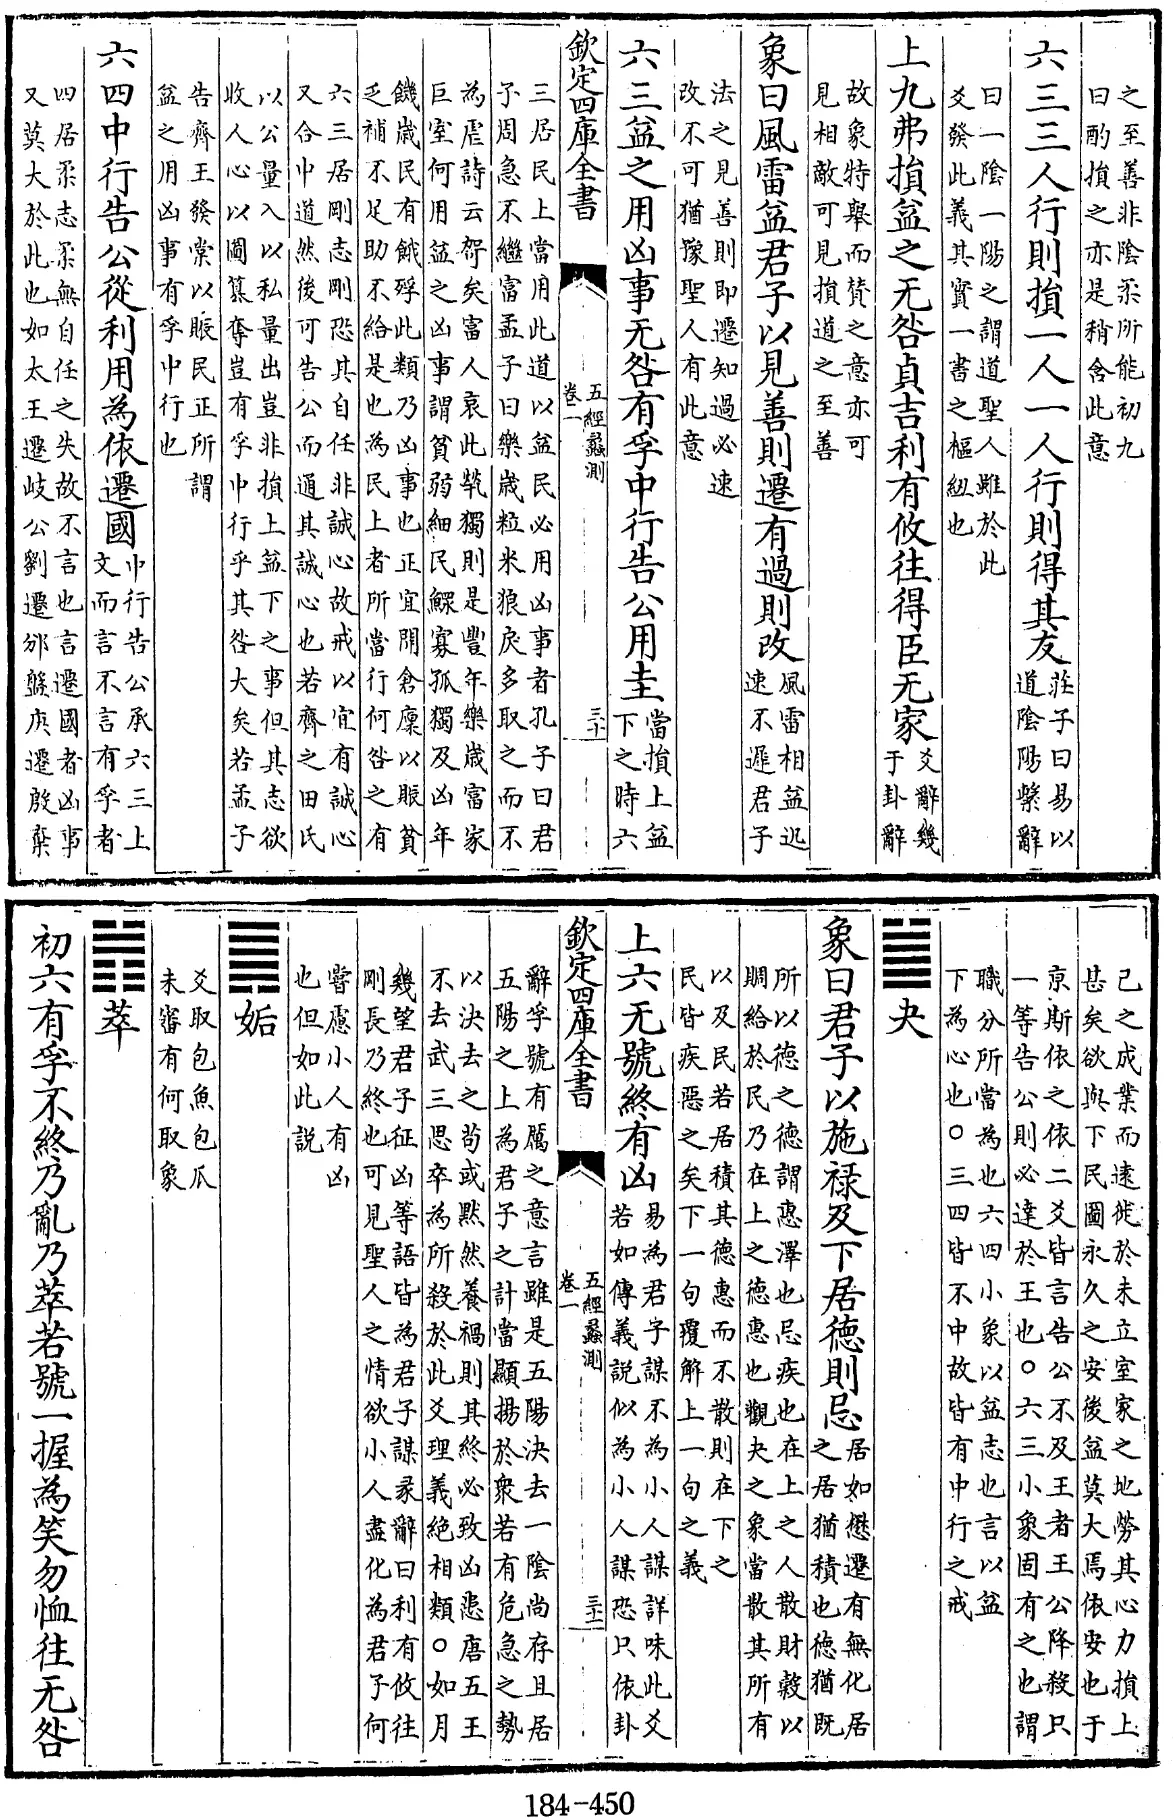 之至善非陰柔所能初九
曰酌損之亦是稍含此意
六三三人行則損一人一人行則得其友
莊子曰易以
道陰陽繫辭
曰一陰一陽之謂道聖人雖於此
爻發此義其實一書之樞紐也
上九弗損益之无咎貞吉利有攸往得臣无家
爻辭幾
于卦辭
故象特舉而贊之意亦可
見相敵可見損道之至善
象曰風雷益君子以見善則遷有過則改
風雷相益迅
速不遲君子
法之見善則即遷知過必速
改不可猶豫聖人有此意
六三益之用凶事无咎有孚中行告公用圭
當損上益
下之時六
欽定四庫全書
五經蠡測
卷一
三十
三居民上當用此道以益民必用凶事者孔子曰君
子周急不繼富孟子曰樂歲粒米狼戾多取之而不
為虐詩云哿矣富人哀此煢獨則是豐年樂歲富家
巨室何用益之凶事謂貧弱細民鰥寡孤獨及凶年
饑歲民有餓殍此類乃凶事也正宜開倉廩以賑貧
乏補不足助不給是也為民上者所當行何咎之有
六三居剛志剛恐其自任非誠心故戒以宜有誠心
又合中道然後可告公而通其誠心也若齊之田氏
以公量入以私量出豈非損上益下之事但其志欲
收人心以圖篡奪豈有孚中行乎其咎大矣若孟子
告齊王發棠以賑民正所謂
益之用凶事有孚中行也
六四中行告公從利用為依遷國
中行告公承六三上
文而言不言有孚者
四居柔志柔無自任之失故不言也言遷國者凶事
又莫大於此也如太王遷岐公劉遷邠盤庚遷殷棄
己之成業而遠徙於未立室家之地勞其心力損上
甚矣欲與下民圖永久之安後益莫大焉依安也于
京斯依之依二爻皆言告公不及王者王公降殺只
一等告公則必達於王也○六三小象固有之也謂
職分所當為也六四小象以益志也言以益
下為心也○三四皆不中故皆有中行之戒
夬
象曰君子以施祿及下居德則忌
居如懋遷有無化居
之居猶積也德猶既
所以德之德謂惠澤也忌疾也在上之人散財穀以
賙給於民乃在上之德惠也觀夬之象當散其所有
以及民若居積其德惠而不散則在下之
民皆疾惡之矣下一句覆解上一句之義
上六无號終有凶
易為君子謀不為小人謀詳味此爻
若如傳義說似為小人謀恐只依卦
欽定四庫全書
五經蠡測
卷一
三十一
辭孚號有厲之意言雖是五陽決去一陰尚存且居
五陽之上為君子之計當顯揚於衆若有危急之勢
以決去之苟或默然養禍則其終必致凶悲唐五王
不去武三思卒為所殺於此爻理義絶相類○如月
幾望君子征凶等語皆為君子謀彖辭曰利有攸往
剛長乃終也可見聖人之情欲小人盡化為君子何
嘗慮小人有凶
也但如此説
姤
爻取包魚包瓜
未審有何取象
萃
初六有孚不終乃亂乃萃若號一握為笑勿恤往无咎
184-450